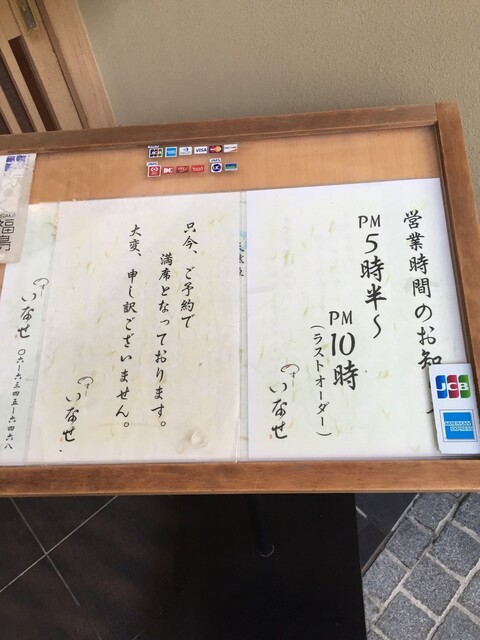 営業時間のお知
PM5時半〜
PM10時
(ラストオーダー)
いなせ
只今、ご予約で
満席となっております。
大変、申し訳ございません。
いなせ
いなせ
〇六-六三四五-六四六八
福島
JCB
AMERICAN EXPRESS
VISA